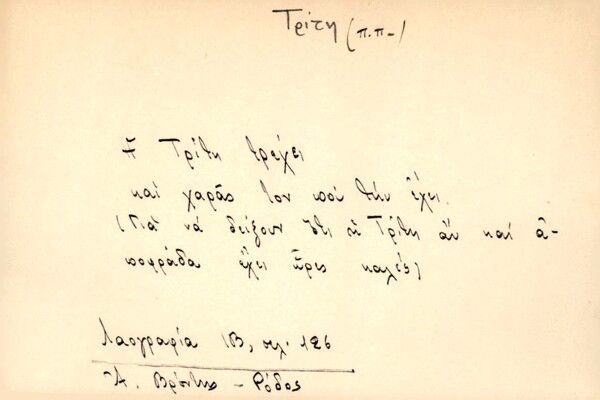 Τρίτη (π.π.)
Ἡ Τρίτη τρέχει
καί χαρᾶς τον πού τήν ἔχει.
(Γιά νά δείξουν ὅτι ἡ Τρίτη ἄν καί ἀ-
ποφράδα ἔχει ὧρες καλές)
Λαογραφία ΙΒ, σελ. 126
Ἀ. Βρόντης - Ρόδος